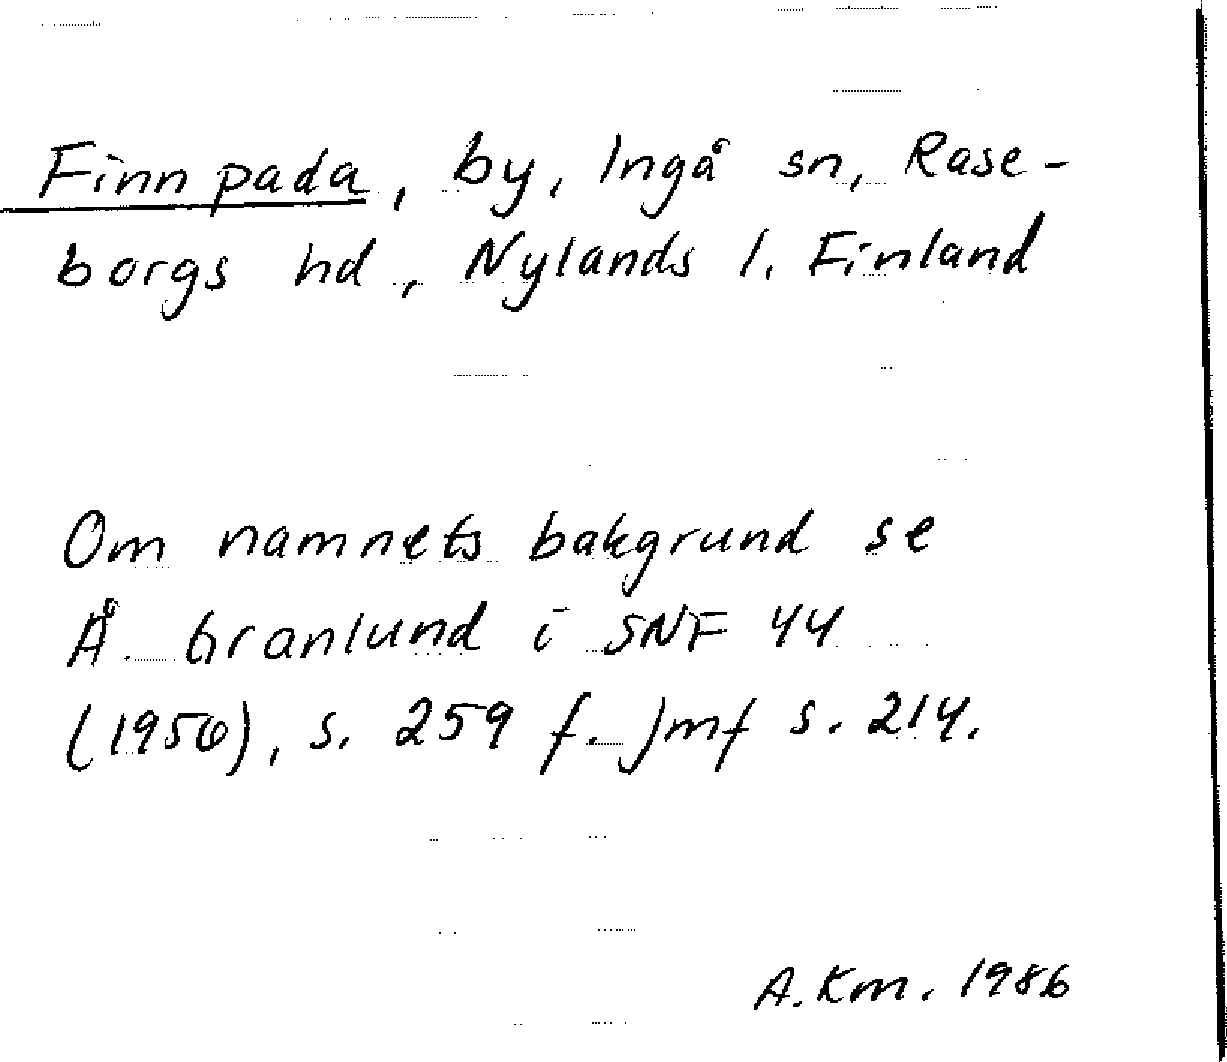 Finnpada, by, Ingå sn, Rase-
borgs hd, Nylands l. Finland
Om namnets bakgrund se
Å. Granlund i SNF 44
(1956), s. 259 f. Jmf s. 214.
A.Km. 1986